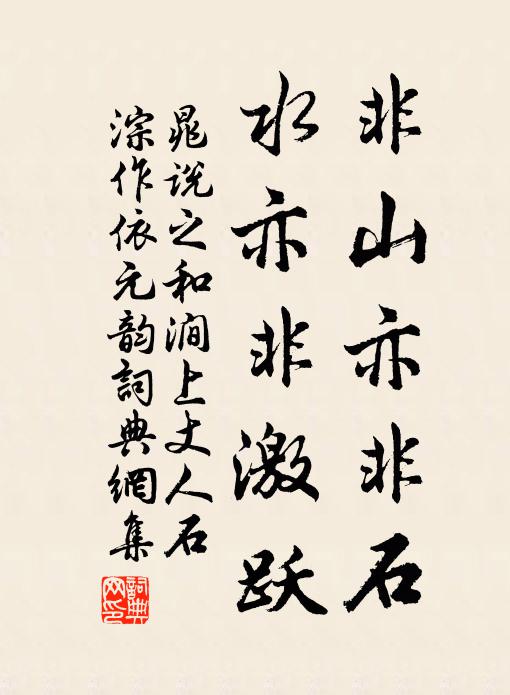 非山亦非石
水亦非激跃
晁说之和涧上丈人石
淙作依元韵詞典網集
詞典
网印